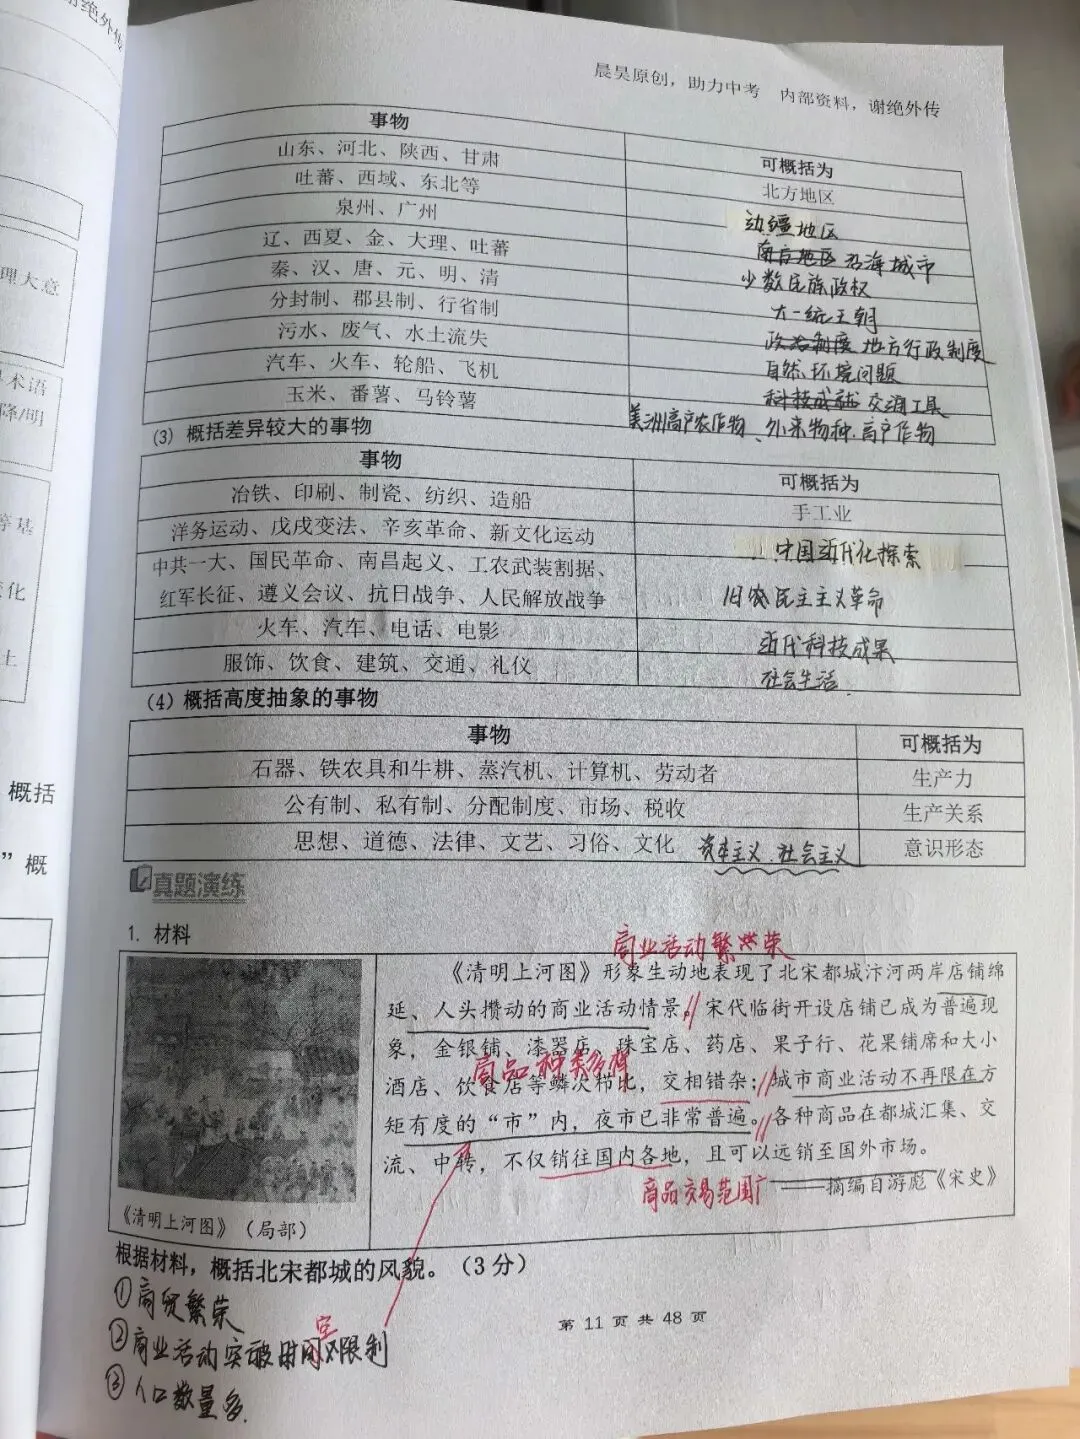 谢绝外传
理大意
术语
降/明
等基
变化
土
概括
”概
晨昊原创，助力中考 内部资料，谢绝外传
事物 可概括为
山东、河北、陕西、甘肃 北方地区
吐蕃、西域、东北等 边疆地区
泉州、广州 南方地区 沿海城市
辽、西夏、金、大理、吐蕃 少数民族政权
秦、汉、唐、元、明、清 大一统王朝
分封制、郡县制、行省制 政治制度 地方行政制度
污水、废气、水土流失 自然、环境问题
汽车、火车、轮船、飞机 科技成就 交通工具
玉米、番薯、马铃薯 美洲高产农作物、外来物种、高产作物
(3) 概括差异较大的事物
事物 可概括为
冶铁、印刷、制瓷、纺织、造船 手工业
洋务运动、戊戌变法、辛亥革命、新文化运动 中国近代化探索
中共一大、国民革命、南昌起义、工农武装割据、
红军长征、遵义会议、抗日战争、人民解放战争 民主主义革命
火车、汽车、电话、电影 近代科技成果
服饰、饮食、建筑、交通、礼仪 社会生活
(4) 概括高度抽象的事物
事物 可概括为
石器、铁农具和牛耕、蒸汽机、计算机、劳动者 生产力
公有制、私有制、分配制度、市场、税收 生产关系
思想、道德、法律、文艺、习俗、文化 资本主义、社会主义 意识形态
真题演练
1. 材料
商业活动繁荣
《清明上河图》形象生动地表现了北宋都城汴河两岸店铺绵
延、人头攒动的商业活动情景。宋代临街开设店铺已成为普遍现
象，金银铺、漆器店、珠宝店、药店、果子行、花果铺席和大小
商品种类多样
酒店、饮食店等鳞次栉比，交相错杂；城市商业活动不再限在方
矩有度的“市”内，夜市已非常普遍。各种商品在都城汇集、交
流、中转，不仅销往国内各地，且可以远销至国外市场。
商品交易范围广
——摘编自游彪《宋史》
《清明上河图》（局部）
根据材料，概括北宋都城的风貌。（3分）
①商贸繁荣
②商业活动突破时间空限制
③人口数量多
第 11 页 共 48 页